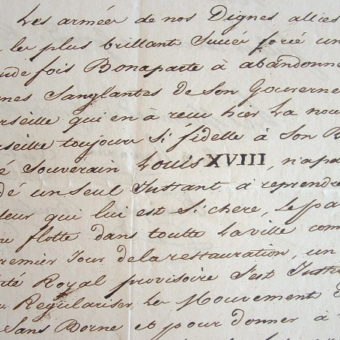 Les armées de nos Dignes allies
le plus brillant Succès forcé un
de fois Bonaparte à abandonne
nes Sanglantes de son Gouverne
rseille qui en à reçu hier la nou
rseille toujours si fidelle à Son B
é Souverain Louis XVIII, n'a pa
dé un Seul Instant à reprendre
leur qui lui est Si chere, le pa
flotte dans toutte la ville com
remier Jour de la restauration, un
té Royal provisoire S'est Insta
Régulariser Le Mouvement
Sans Borne et pour donner à